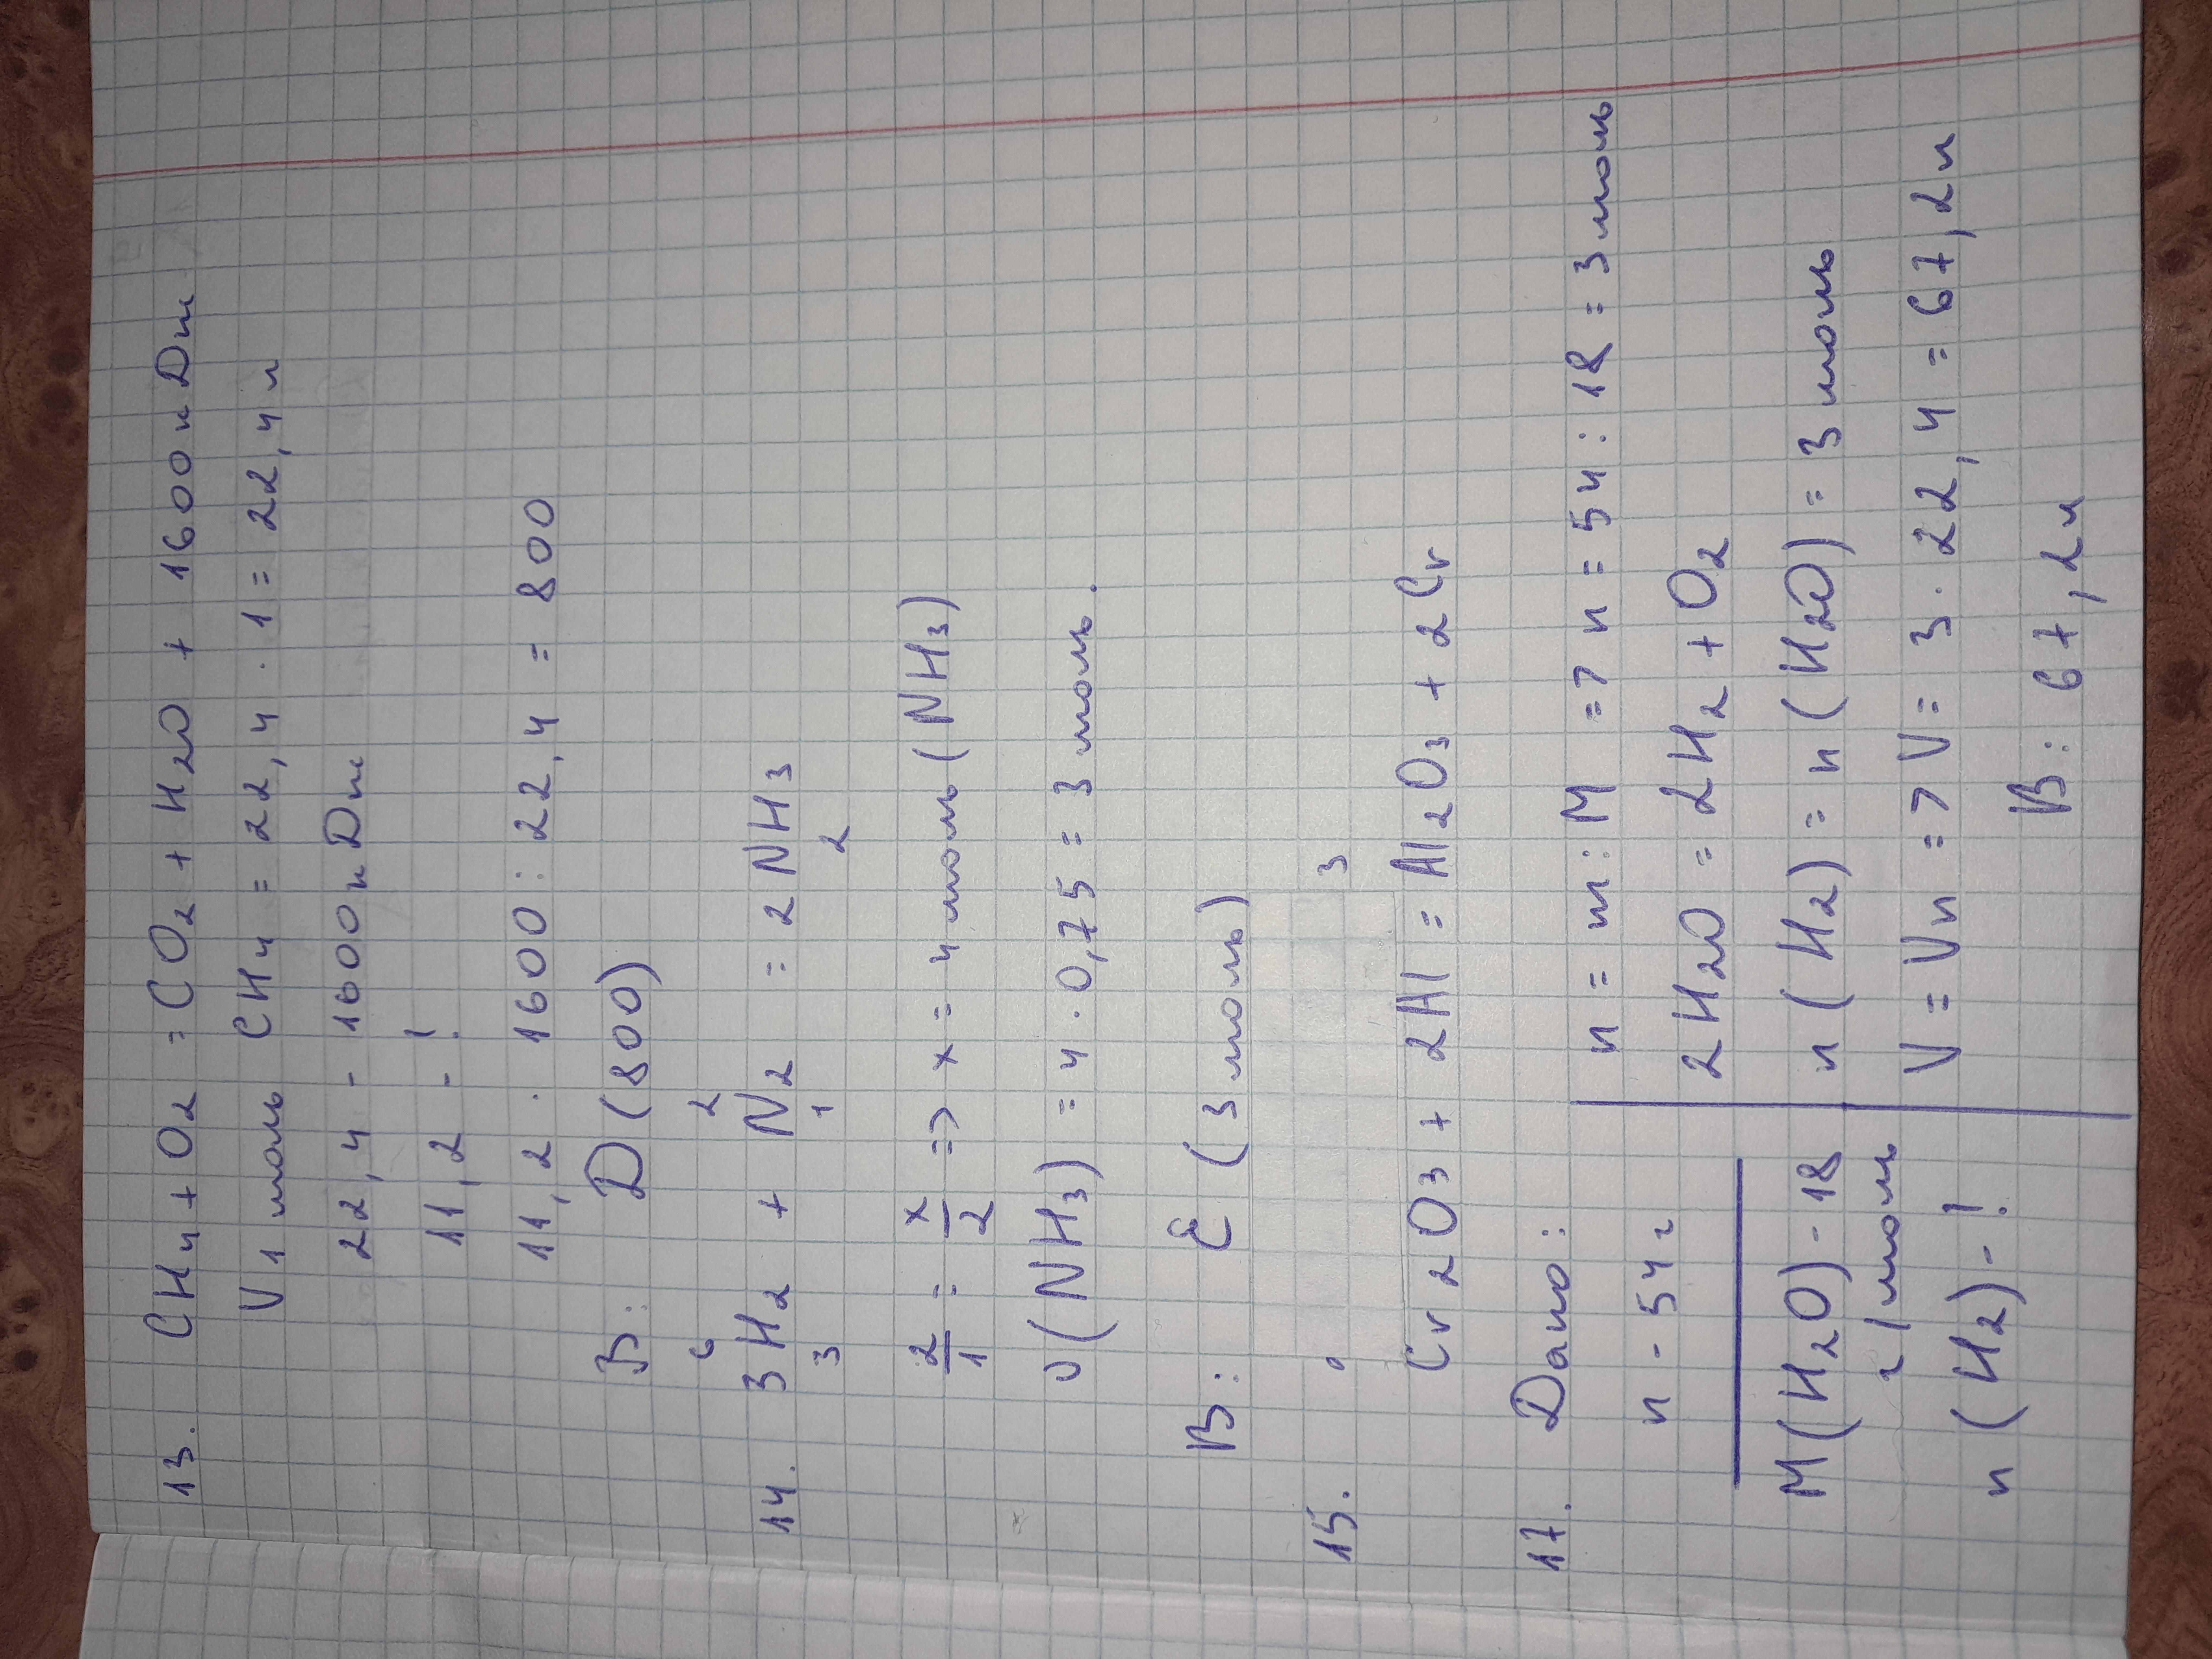 13. CH4 + O2 = CO2 + H2O + 1600 кDж
V 1 моль CH4 = 22,4 · 1 = 22,4 л
22,4 - 1600 кDж
11,2 - !
11,2 · 1600 : 22,4 = 800
В: D (800)
6 2
14. 3H2 + N2 = 2NH3
3 1 2
2/1 = x/2 => x = 4 моль (NH3)
υ(NH3) = 4 · 0,75 = 3 моль.
В: E (3 моль)
15. 0 3
Cr2O3 + 2Al = Al2O3 + 2Cr
17. Dано:
n - 54 г
M(H2O) - 18
г/моль
n (H2) - !
n = m : M => n = 54 : 18 = 3 моль
2H2O = 2H2 + O2
n (H2) = n (H2O) = 3 моль
V = Vn => V = 3 · 22,4 = 67,2л
В: 67,2л